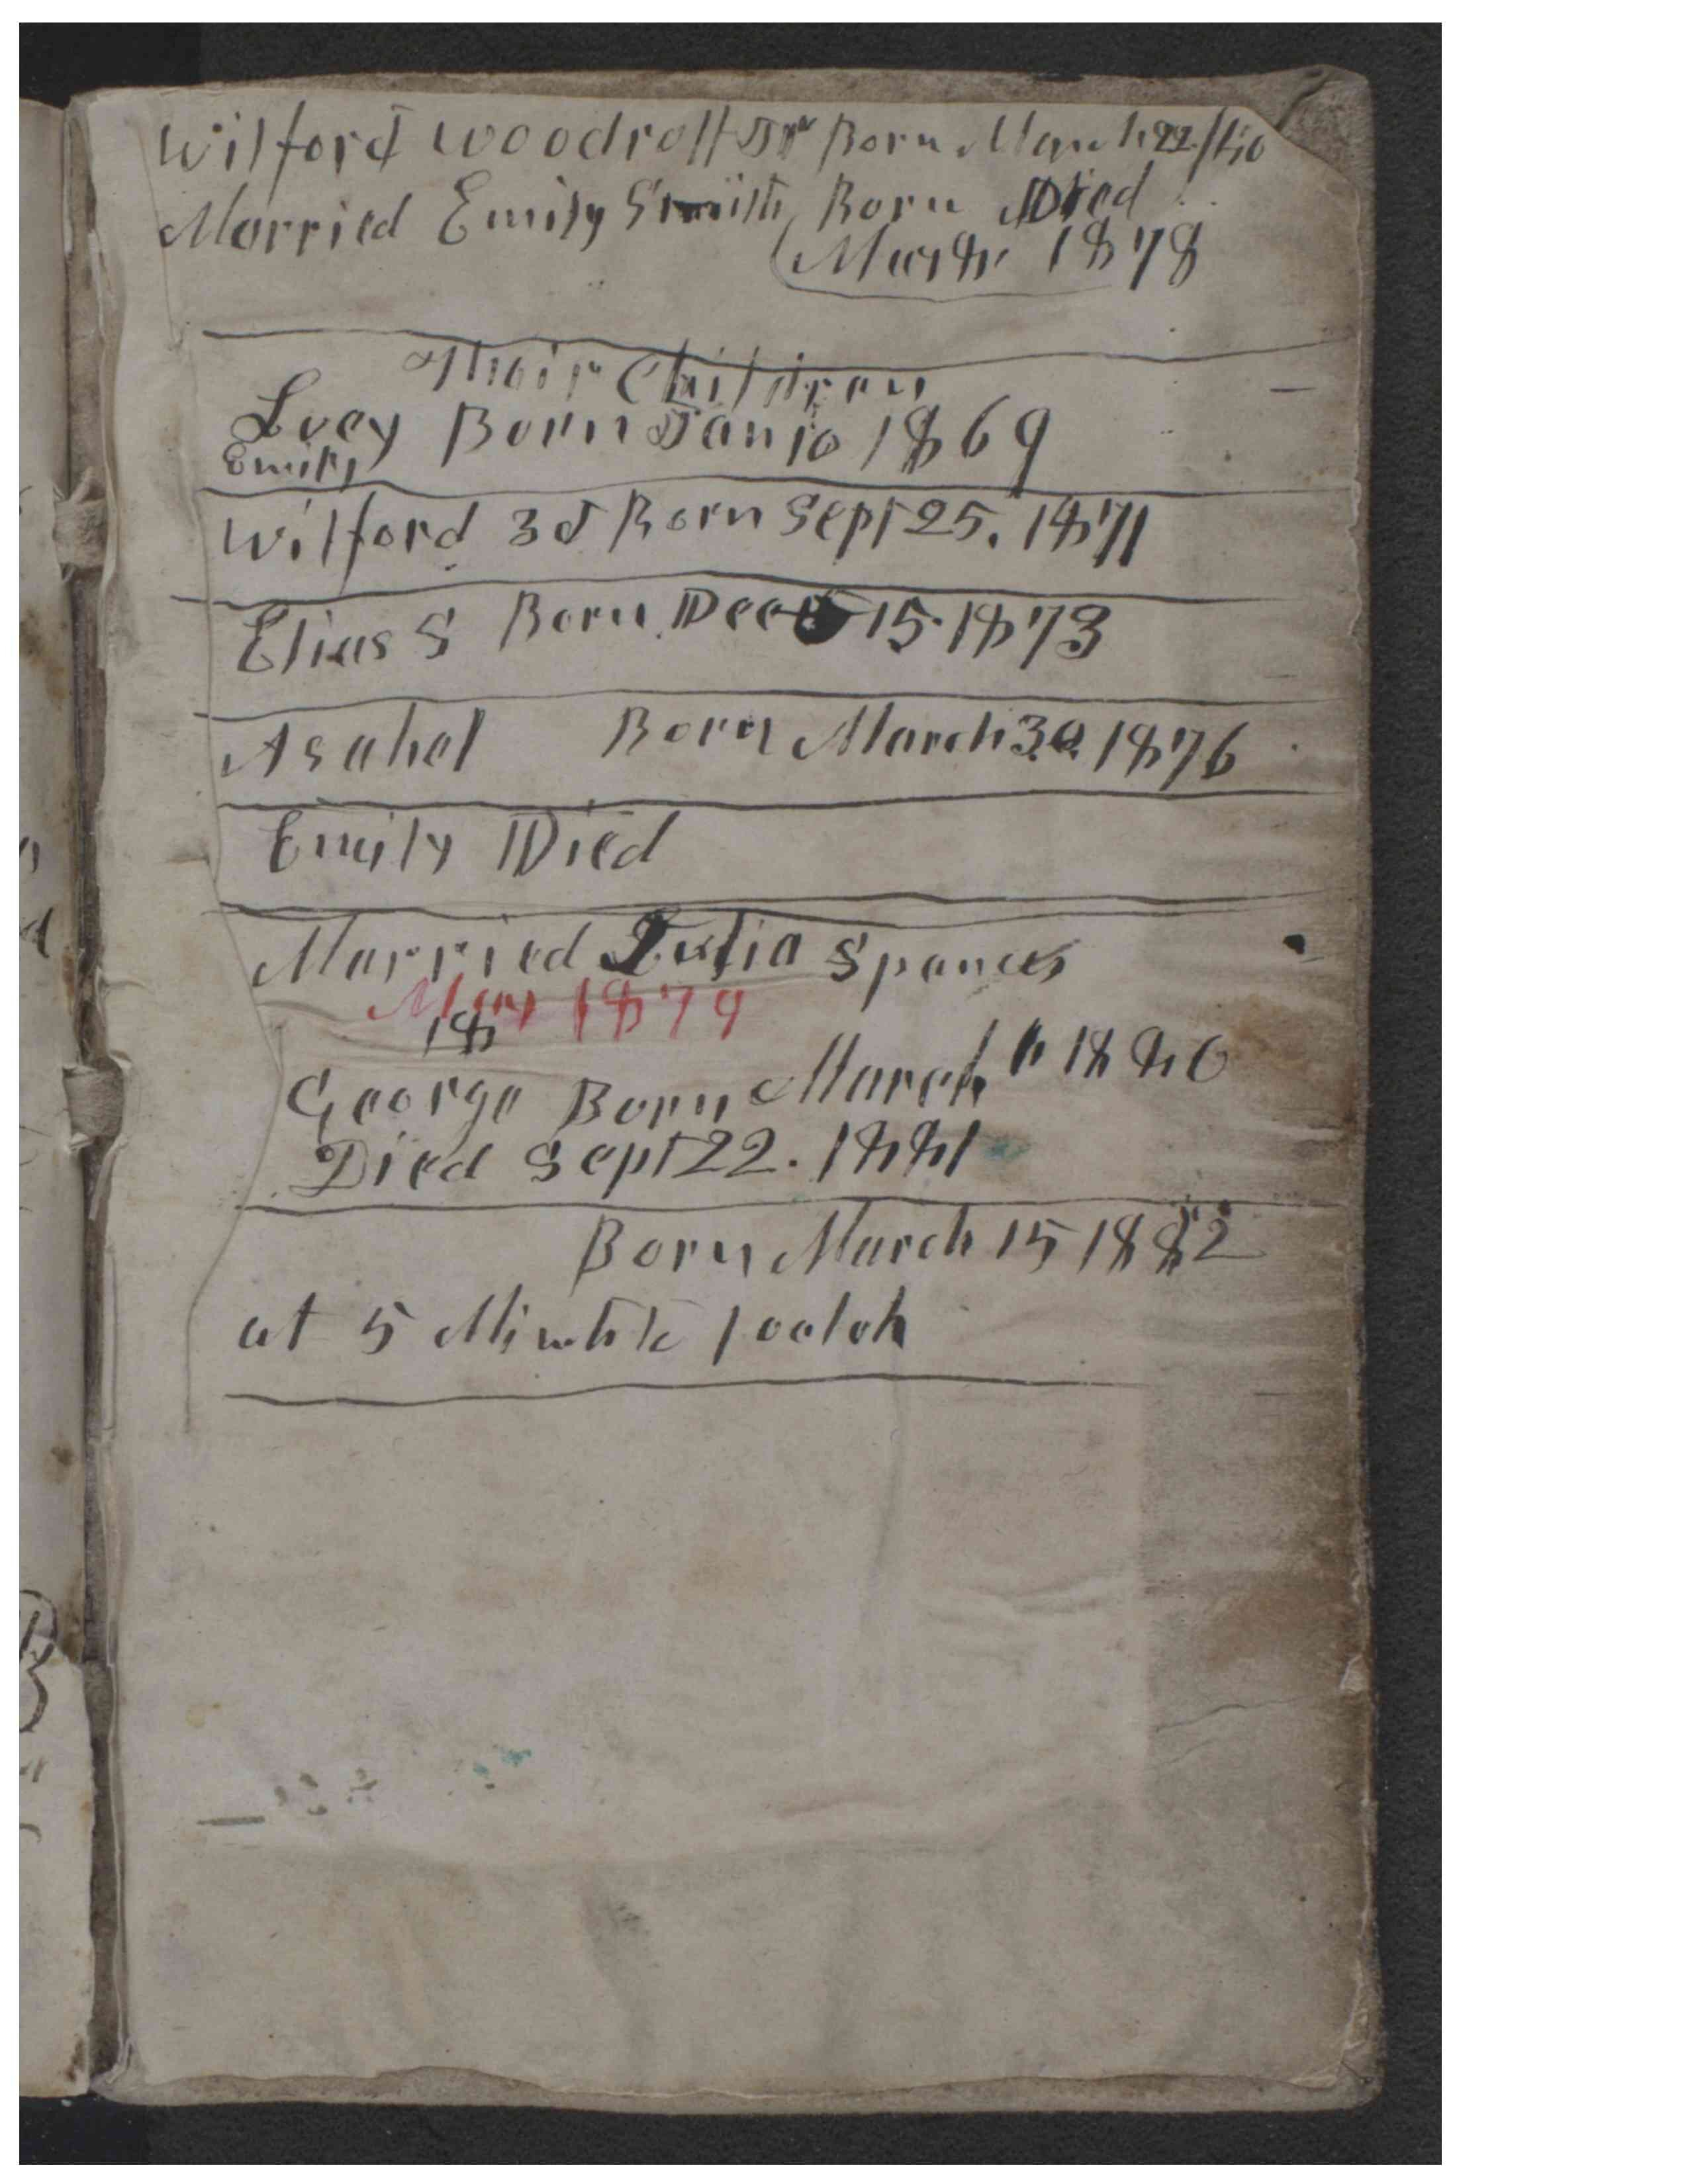 Wilford Woodruff Jr Born March 22/40
Married Emily Smith Born Died
March 1878
Their Children
Lucy Born Jan 10 1869
Emily
Wilford 3d Born Sept 25. 1871
Elias S Born Dec 15 1873
Asahel Born March 30 1876
Emily Died
Married Julia Spences
May 1879
18
George Born March 1880
Died Sept 22. 1881
Born March 15 1882
at 5 Minute to 1 oclok